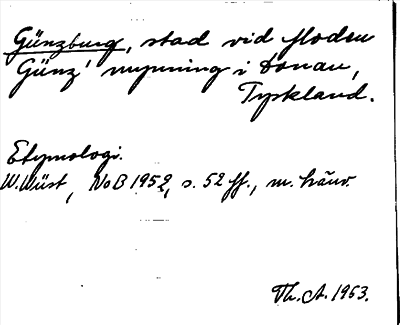 Günzburg, stad vid floden
Günz' mynning i Donau,
Tyskland.
Etymologi.
W. Wüst, NoB 1952, s. 52 ff., m. hänv.
Th. A. 1963.